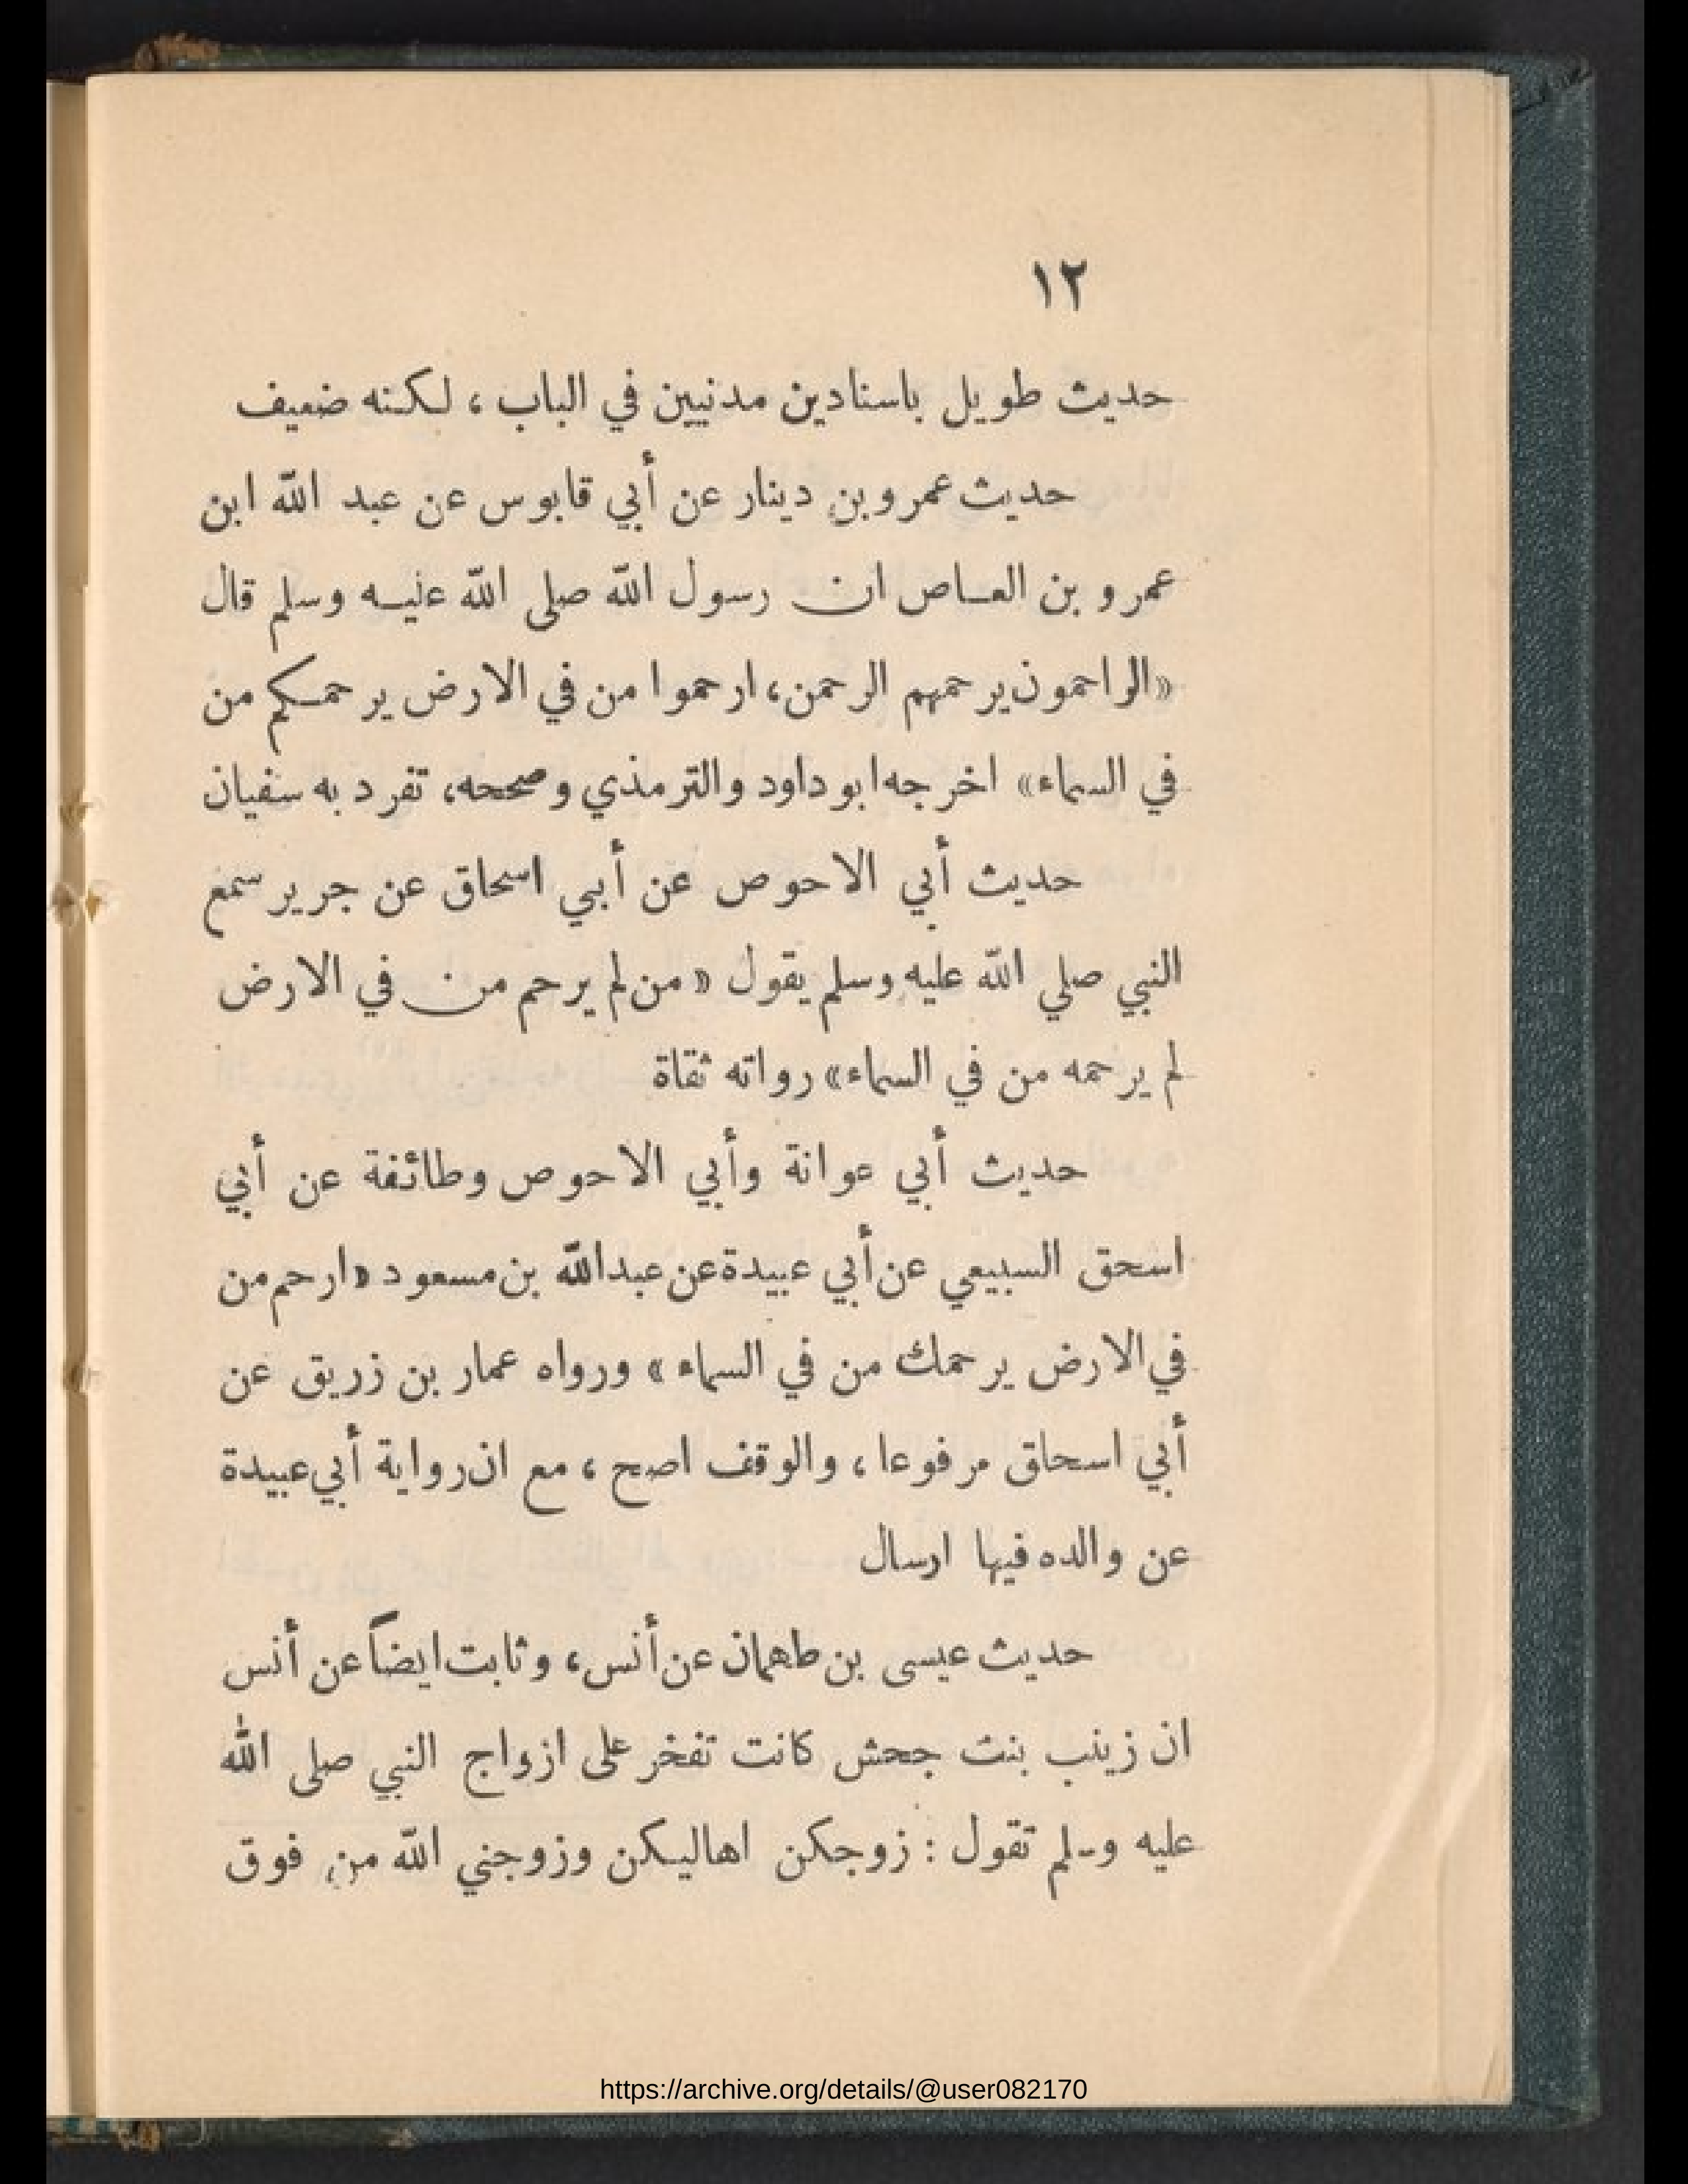 ١٢
حديث طويل باسنادين مدنيين في الباب ، لكنه ضعيف
حديث عمرو بن دينار عن أبي قابوس عن عبد الله ابن
عمرو بن العاص ان رسول الله صلى الله عليه وسلم قال
«الراحمون يرحمهم الرحمن، ارحموا من في الارض يرحمكم من
في السماء» اخرجه ابو داود والترمذي وصححه، تفرد به سفيان
حديث أبي الاحوص عن أبي اسحاق عن جرير سمع
النبي صلي الله عليه وسلم يقول « من لم يرحم من في الارض
لم يرحمه من في السماء» رواته ثقاة
حديث أبي عوانة وأبي الاحوص وطائفة عن أبي
اسحق السبيعي عن أبي عبيدة عن عبدالله بن مسعود «ارحم من
في الارض يرحمك من في السماء » ورواه عمار بن زريق عن
أبي اسحاق مرفوعا ، والوقف اصح ، مع ان رواية أبي عبيدة
عن والده فيها ارسال
حديث عيسى بن طهمان عن أنس، وثابت ايضاً عن أنس
ان زينب بنت جحش كانت تفخر على ازواج النبي صلى الله
عليه وسلم تقول : زوجكن اهاليكن وزوجني الله من فوق
https://archive.org/details/@user082170